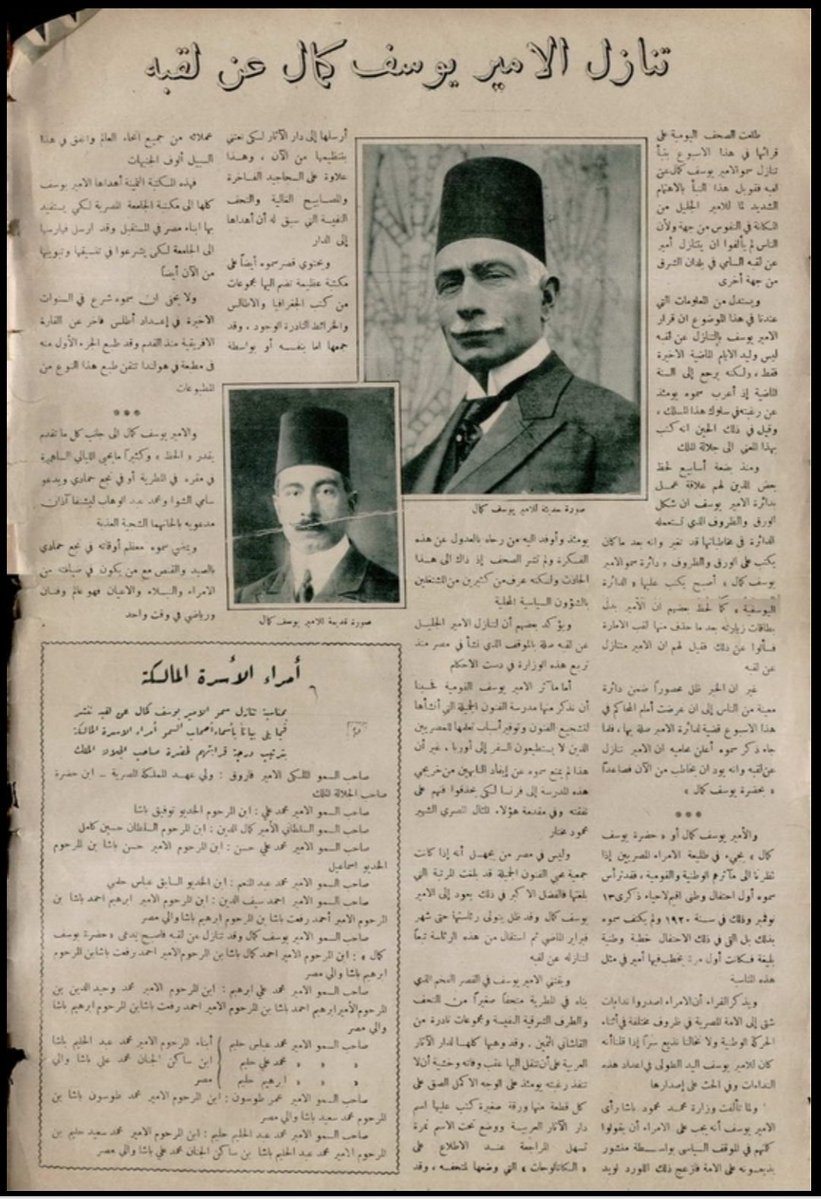 تنازل الامير يوسف كمال عن لقبه
طلعت الصحف اليومية على
قرائها في هذا الاسبوع بنبأ
تنازل سمو الامير يوسف كمال عن
لقبه فقوبل هذا النبأ بالاهتمام
الشديد لما للامير الجليل من
المكانة في النفوس من جهة ولأن
الناس لم يألفوا ان يتنازل أمير
عن لقبه السامي في بلدان الشرق
من جهة أخرى
ويستدل من المعلومات التي
عندنا في هذا الموضوع ان قرار
الامير يوسف بالتنازل عن لقبه
ليس وليد الايام الماضية الاخيرة
فقط ، ولكنه يرجع إلى السنة
الماضية إذ أعرب سموه يومئذ
عن رغبته في سلوك هذا المسلك ،
وقيل في ذلك الحين انه كتب
بهذا المعنى الى جلالة الملك
ومنذ بضعة أسابيع لحظ
بعض الذين لهم علاقة عمل
بدائرة الامير يوسف ان شكل
الورق والظروف الذي تستعمله
الدائرة في مخاطباتها قد تغير وانه بعد ما كان
يكتب على الورق والظروف « دائرة سمو الامير
يوسف كمال » أصبح يكتب عليها « الدائرة
اليوسفية » كما لحظ بعضهم ان الأمير بدل
بطاقات زيارته بعد ما حذف منها لقب الامارة
فسألوا عن ذلك فقيل لهم ان الامير متنازل
عن لقبه
غير ان الخبر ظل محصوراً ضمن دائرة
معينة من الناس إلى ان عرضت أمام المحاكم في
هذا الاسبوع قضية لدائرة الامير صلة بها ، فلما
جاء ذكر سموه أعلن محاميه ان الامير تنازل
عن لقبه وانه يود ان يخاطب من الآن فصاعداً
« بحضرة يوسف كمال »
***
والأمير يوسف كمال أو « حضرة يوسف
كمال » يجيء في طليعة الامراء المصريين إذا
نظرنا الى مآثرهم الوطنية والقومية ، فقد ترأس
سموه أول احتفال وطني اقيم لاحياء ذكرى ١٣
نوفمبر وذلك في سنة ١٩٢٠ ولم يكتف سموه
بذلك بل القى في ذلك الاحتفال خطبة وطنية
بليغة فكانت أول مرة يخطب فيها أمير في مثل
هذه المناسبة
ويذكر القراء أن الامراء اصدروا نداءات
شتى إلى الامة المصرية في ظروف مختلفة في أثناء
الحركة الوطنية ولا نخالنا نذيع سرّاً إذا قلنا أنه
كان للامير يوسف اليد الطولى في اعداد هذه
النداءات وفي الحث على إصدارها
ولما تألفت وزارة محمد محمود باشا رأى
الامير يوسف أنه يجب على الامراء أن يقولوا
كلمتهم في الموقف السياسي بواسطة منشور
يذيعونه على الامة فازعج ذلك اللورد لويد
صورة حديثة للامير يوسف كمال
يومئذ وأوفد اليه من رجاه بالعدول عن هذه
الفكرة ولم تشر الصحف إذ ذاك الى هذا
الحادث ولكنه عرف من كثيرين من المشتغلين
بالشؤون السياسية المحلية
ويؤكد بعضهم أن لتنازل الامير الجليل
عن لقبه صلة بالموقف الذي نشأ في مصر منذ
تربع هذه الوزارة في دست الاحكام
أما مآثر الامير يوسف القومية فحسبنا
أن نذكر منها مدرسة الفنون الجميلة التي أنشأها
لتشجيع الفنون وتوفير أسباب تعلمها للمصريين
الذين لا يستطيعون السفر إلى أوربا ، غير أن
هذا لم يمنع سموه عن إيفاد النابهين من خريجي
هذه المدرسة إلى فرنسا لكي يحذقوا فنهم على
نفقته وفي مقدمة هؤلاء المثال المصري الشهير
محمود مختار
وليس في مصر من يجهل أنه إذا كانت
جمعية محبي الفنون الجميلة قد بلغت المرتبة التي
بلغتها فالفضل الاكبر في ذلك يعود إلى الامير
يوسف كمال وقد ظل يتولى رئاستها حتى شهر
فبراير الماضي ثم استقال من هذه الرئاسة تبعاً
لتنازله عن لقبه
ويقتني الامير يوسف في القصر الفخم الذي
بناه في المطرية متحفاً صغيراً من التحف
والطرف الشرقية النفيسة ومجموعات نادرة من
القاشاني الثمين . وقد وهبها كلها لدار الآثار
العربية على أن تنقل اليها عقب وفاته وخشية أن لا
تنفذ رغبته يومئذ على الوجه الاكمل الصق على
كل قطعة منها ورقة صغيرة كتب عليها اسم
دار الآثار العربية ووضع تحت الاسم نمرة
تسهل المراجعة عند الاطلاع على
« الكتالوجات » التي وضعها لمتحفه ، وقد
أرسلها إلى دار الآثار لكي تعتني
بتنظيمها من الآن ، وهذا
علاوة على السجاجيد الفاخرة
والمصابيح الغالية والتحف
النفيسة التي سبق له أن أهداها
إلى الدار
ويحتوي قصر سموه أيضاً على
مكتبة عظيمة تضم اليها مجموعات
من كتب الجغرافيا والاطالس
والخرائط النادرة الوجود . وقد
جمعها اما بنفسه أو بواسطة
صورة قديمة للامير يوسف كمال
عملائه من جميع انحاء العالم وانفق في هذا
السبيل ألوف الجنيهات
فهذه المكتبة الثمينة أهداها الامير يوسف
كلها الى مكتبة الجامعة المصرية لكي يستفيد
بها ابناء مصر في المستقبل وقد ارسل فهارسها
الى الجامعة لكي يشرعوا في تنسيقها وتبويبها
من الآن أيضاً
ولا يخفى ان سموه شرع في السنوات
الاخيرة في إعداد أطلس فاخر عن القارة
الافريقية منذ القدم وقد طبع الجزء الأول منه
في مطبعة في هولندا تتقن طبع هذا النوع من
المطبوعات
***
والامير يوسف كمال الى جانب كل ما تقدم
يقدر « الحظ » وكثيراً ما يحيي الليالي الساهرة
في مقره في المطرية أو في نجع حمادي ويدعو
سامي الشوا ومحمد عبد الوهاب ليشنفا آذان
مدعويه بالحانهما الشجية العذبة
ويمضي سموه معظم أوقاته في نجع حمادي
بالصيد والقنص مع من يكون في ضيافته من
الامراء والنبلاء والاعيان فهو عالم وفنان
ورياضي في وقت واحد
أمراء الأسرة المالكة
بمناسبة تنازل سمو الامير يوسف كمال عن لقبه ننشر
فيما يلي بياناً بأسماء أصحاب السمو أمراء الاسرة المالكة
بترتيب درجة قرابتهم لحضرة صاحب الجلالة الملك
صاحب السمو الملكي الامير فاروق : ولي عهد المملكة المصرية – ابن حضرة
صاحب الجلالة الملك
صاحب السمو الامير محمد علي : ابن المرحوم الخديو توفيق باشا
صاحب السمو السلطاني الأمير كمال الدين : ابن المرحوم السلطان حسين كامل
صاحب السمو الامير محمد علي حسن : ابن المرحوم الامير حسن باشا بن المرحوم
الخديو اسماعيل
صاحب السمو الامير محمد عبد المنعم : ابن الخديو السابق عباس حلمي
صاحب السمو الامير احمد سيف الدين : ابن المرحوم الامير ابرهيم احمد باشا بن
المرحوم الامير أحمد رفعت باشا بن المرحوم ابرهيم باشا والي مصر
صاحب السمو الامير يوسف كمال وقد تنازل عن لقبه فاصبح يدعى « حضرة يوسف
كمال » : ابن المرحوم الامير احمد كمال باشا بن المرحوم الامير احمد رفعت باشا بن المرحوم
ابرهيم باشا والي مصر
صاحب السمو الامير محمد علي ابرهيم : ابن المرحوم الامير محمد وحيد الدين بن
المرحوم الأمير ابرهيم احمد باشا بن المرحوم الامير احمد رفعت باشا بن المرحوم ابرهيم باشا
والي مصر
صاحب السمو الامير محمد عباس حليم } أبناء المرحوم الامير محمد عبد الحليم باشا
» » » محمد علي حليم } ابن ساكن الجنان محمد علي باشا والي
» » » ابرهيم حليم } مصر
صاحب السمو الامير عمر طوسون : ابن المرحوم الامير محمد طوسون باشا بن
المرحوم محمد سعيد باشا والي مصر
صاحب السمو الامير محمد عبد الحليم حليم : ابن المرحوم الامير محمد سعيد حليم بن
المرحوم الامير محمد عبد الحليم باشا بن ساكن الجنان محمد علي باشا والي مصر